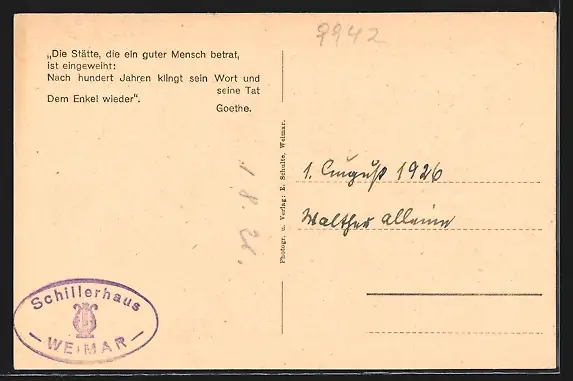 „Die Stätte, die ein guter Mensch betrat,
ist eingeweiht:
Nach hundert Jahren klingt sein Wort und
seine Tat
Dem Enkel wieder“.
Goethe.
Schillerhaus
— WEIMAR —
1. 8. 26.
Photogr. u. Verlag: E. Schulte, Weimar.
9942
1. August 1926
Walther alleine